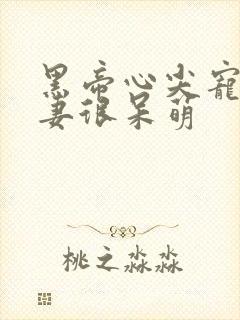 黑帝心尖宠
妻很呆萌
桃之淼淼